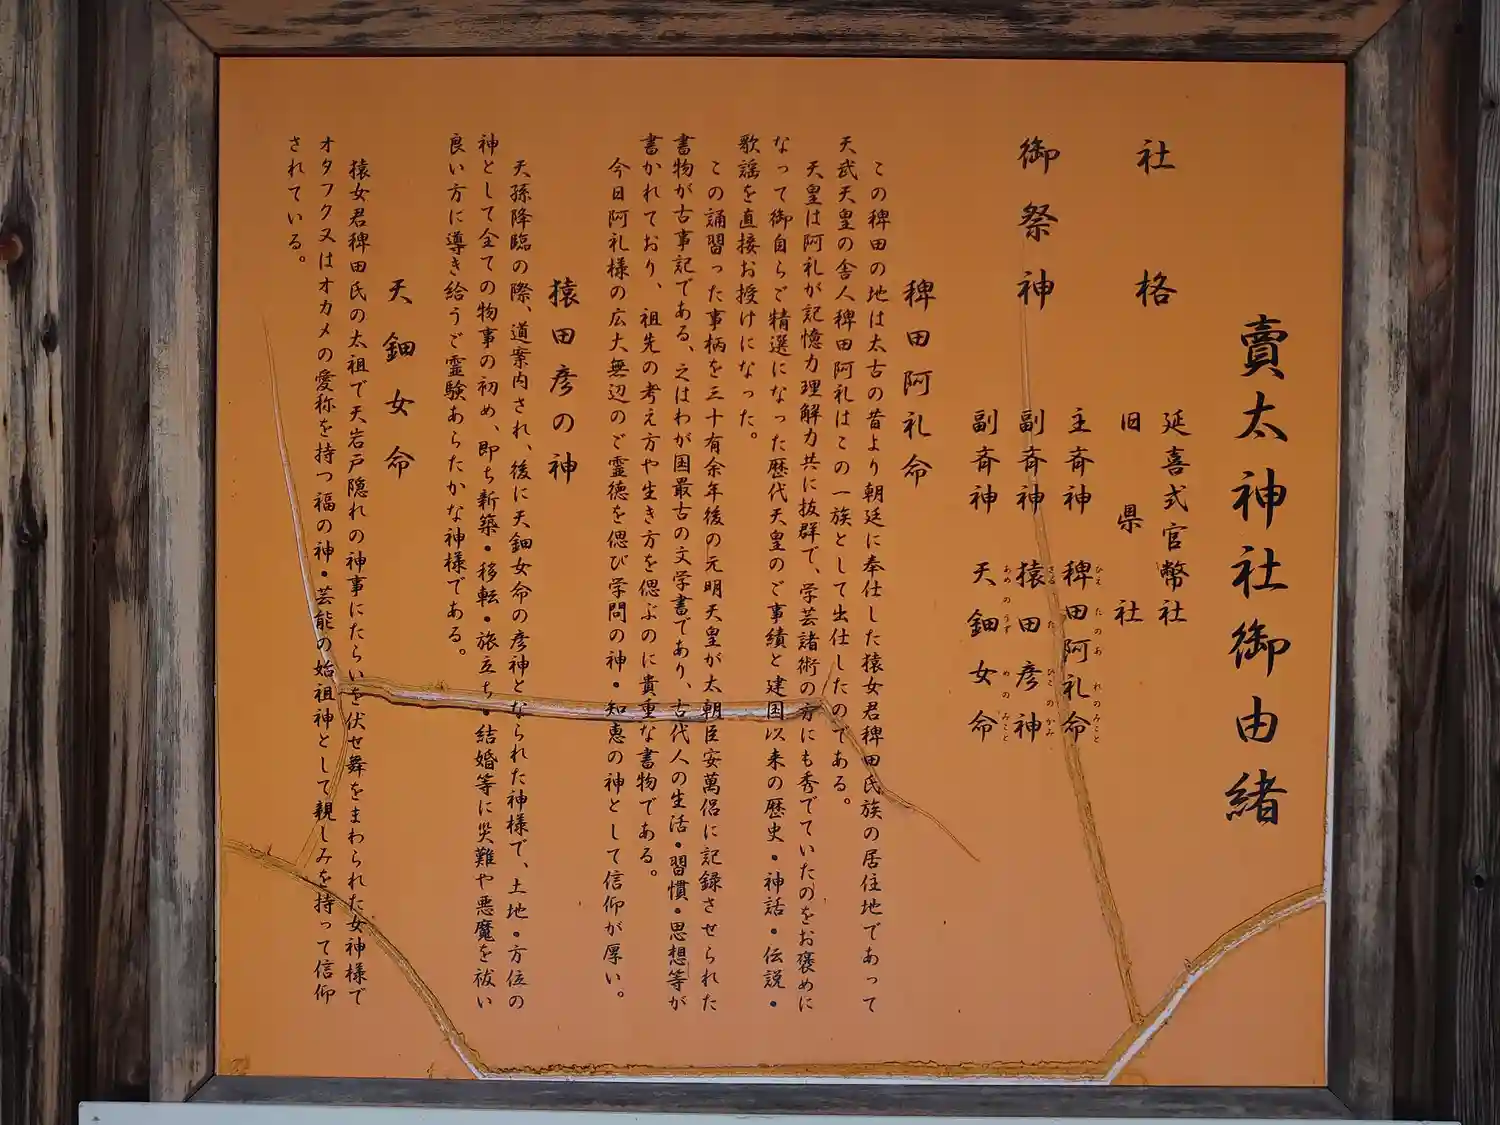 賣太神社御由緒
社格
延喜式官幣社
旧県社
御祭神
主斉神 稗田阿礼命
ひえ たのあ れのみこと
副斉神 猿田彦神
さる た ひこ のかみ
副斉神 天鈿女命
あめ のうず めの みこと
稗田阿礼命
この稗田の地は太古の昔より朝廷に奉仕した猿女君稗田氏族の居住地であって
天武天皇の舎人稗田阿礼はこの一族として出仕したのである。
天皇は阿礼が記憶力理解力共に抜群で、学芸諸術の方にも秀でていたのをお褒めに
なって御自らご精選になった歴代天皇のご事績と建国以来の歴史・神話・伝説・
歌謡を直接お授けになった。
この誦習った事柄を三十有余年後の元明天皇が太朝臣安萬侶に記録させられた
書物が古事記である、之はわが国最古の文学書であり、古代人の生活・習慣・思想等が
書かれており、祖先の考え方や生き方を偲ぶのに貴重な書物である。
今日阿礼様の広大無辺のご霊徳を偲び学問の神・知恵の神として信仰が厚い。
猿田彦の神
天孫降臨の際、道案内され、後に天鈿女命の彦神となられた神様で、土地・方位の
神として全ての物事の初め、即ち新築・移転・旅立ち・結婚等に災難や悪魔を祓い
良い方に導き給うご霊験あらたかな神様である。
天鈿女命
猿女君稗田氏の太祖で天岩戸隠れの神事にたらいを伏せ舞をまわられた女神様で
オタフク又はオカメの愛称を持つ福の神・芸能の始祖神として親しみを持って信仰
されている。